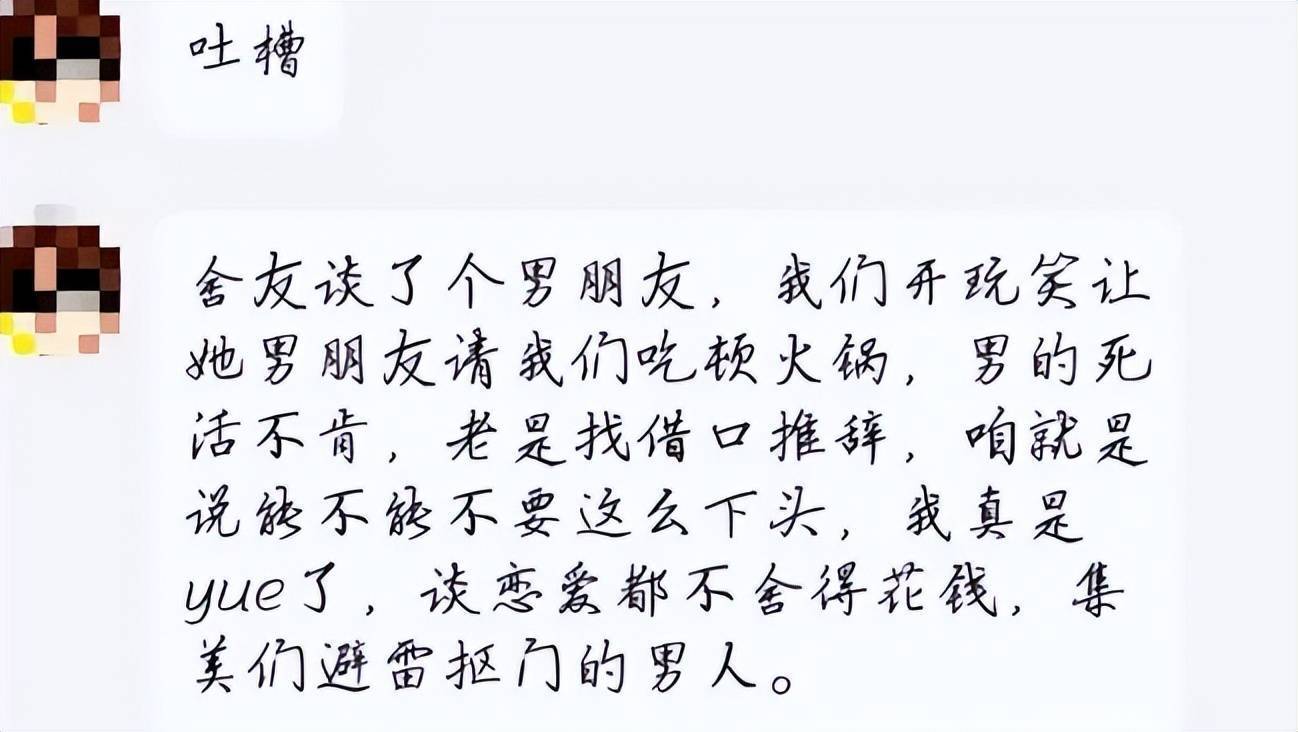 吐槽
舍友谈了个男朋友，我们开玩笑让
她男朋友请我们吃顿火锅，男的死
活不肯，老是找借口推辞，咱就是
说能不能不要这么下头，我真是
yue了，谈恋爱都不舍得花钱，集
美们避雷抠门的男人。